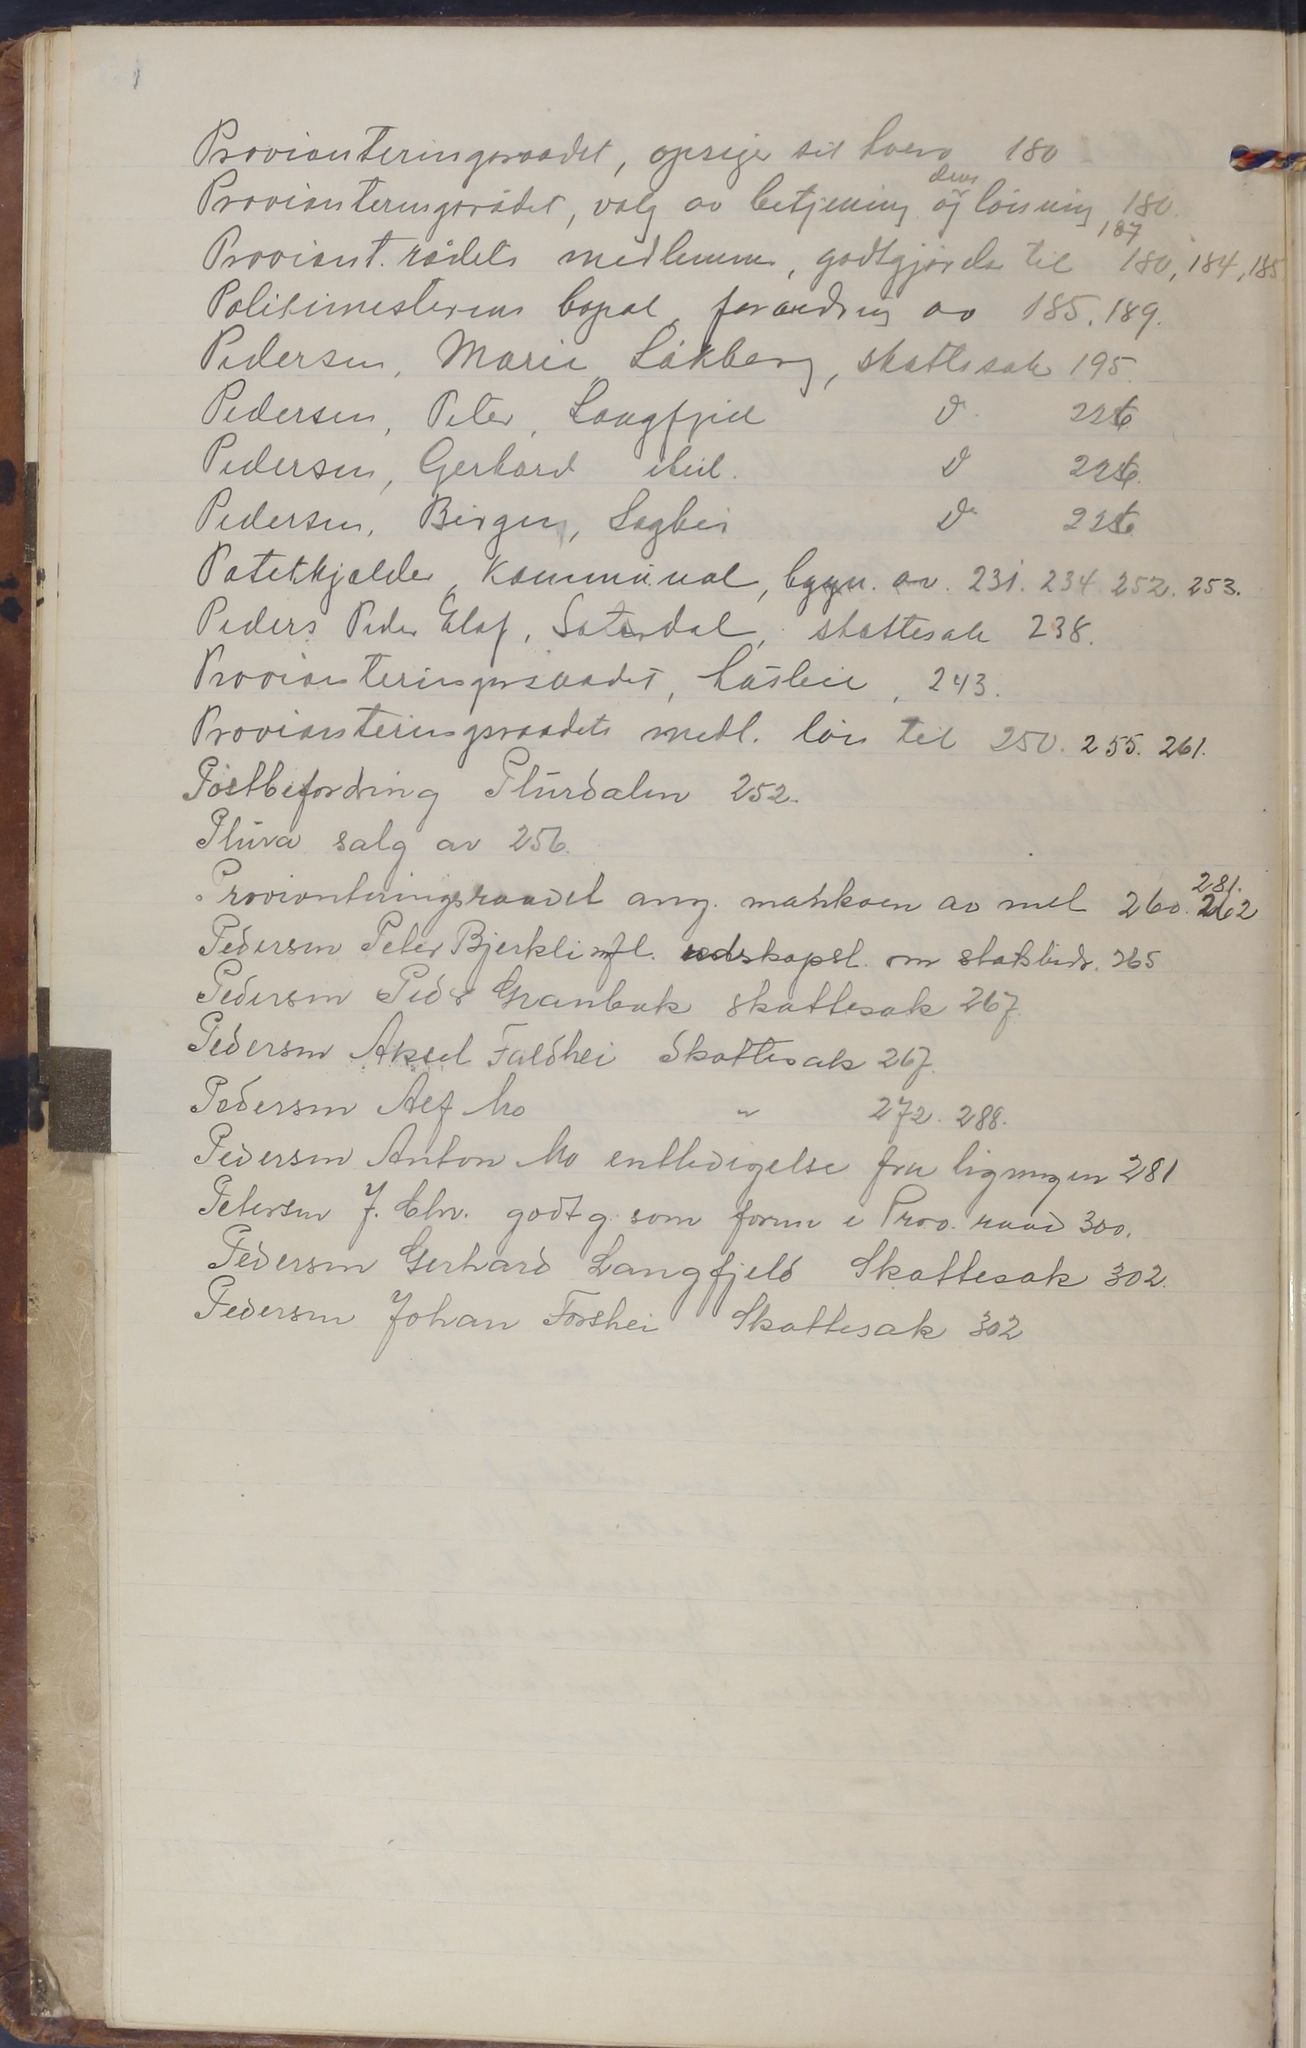 Provianteringsraadet, opsige sit hverv 180
Provianteringsrådet, valg av betjening og dens lønning, 180.
Proviant. rådets medlemmer, godtgjørelse til 180, 184, 185 187
Politimesterens bopæl, forandring av 185. 189.
Pedersen, Marie Låkberg, skattesak 195.
Pedersen, Peter, Langfjell do 226
Pedersen, Gerhard ibid. do 226.
Pedersen, Birger, do 226
Potetkjelder, kommunal, bygn. av. 231. 234. 252. 253.
Peders. Peder Elof, skattesak 238.
Provianteringsraadet, husleie, 243.
Provianteringsraadets medl. løn til 250. 255. 261.
Postbefordring Plurdalen 252.
Plura salg av 256.
Provianteringsraadet ang. mankoen av mel 260. 262 281.
Pedersen Peter Bjerkli mfl. redskapsl. om statsbidr. 265
Pedersen Peder Granbak skattesak 267.
Pedersen Aksel Faldhei Skattesak 267.
Pedersen Alf Mo " 272. 288.
Pedersen Anton Mo entledigelse fra ligningen 281
Petersen J. Chr. godtg. som form i Prov. raad 300.
Pedersen Gerhard Langfjeld Skattesak 302.
Pedersen Johan Forshei Skattesak 302